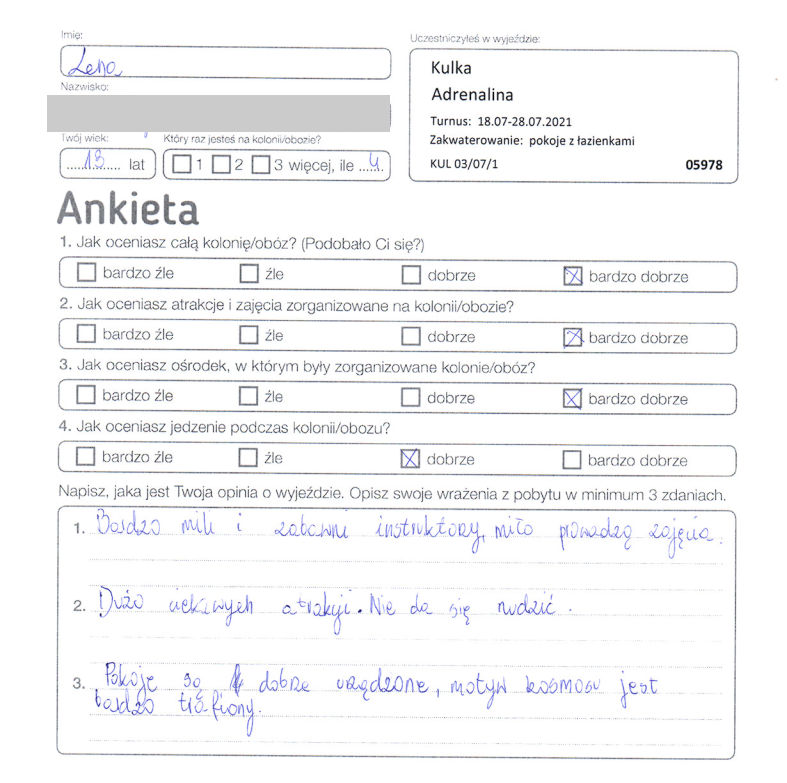 Imię:
Uczestniczyłeś w wyjeździe:
Lena
Kulka
Adrenalina
Turnus: 18.07-28.07.2021
Zakwaterowanie: pokoje z łazienkami
KUL 03/07/1 05978
Nazwisko:
Twój wiek: Który raz jesteś na kolonii/obozie?
13 lat 1 2 3 więcej, ile 4
Ankieta
1. Jak oceniasz całą kolonię/obóz? (Podobało Ci się?)
bardzo źle źle dobrze bardzo dobrze
2. Jak oceniasz atrakcje i zajęcia zorganizowane na kolonii/obozie?
bardzo źle źle dobrze bardzo dobrze
3. Jak oceniasz ośrodek, w którym były zorganizowane kolonie/obóz?
bardzo źle źle dobrze bardzo dobrze
4. Jak oceniasz jedzenie podczas kolonii/obozu?
bardzo źle źle dobrze bardzo dobrze
Napisz, jaka jest Twoja opinia o wyjeździe. Opisz swoje wrażenia z pobytu w minimum 3 zdaniach.
1. Bardzo mili i zabawni instruktorzy, miło prowadzą zajęcia.
2. Dużo ciekawych atrakcji. Nie da się nudzić.
3. Pokoje są dobrze urządzone, motyw kosmosu jest
bardzo trafiony.